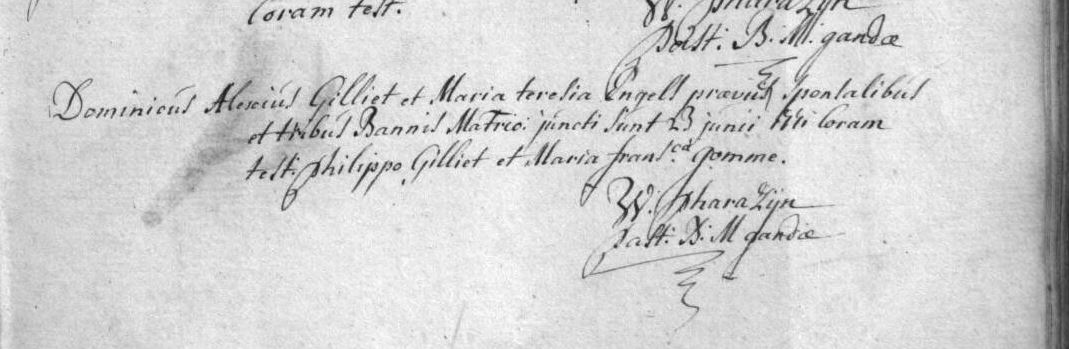 Coram test.
W. pharaZijn
past: B: M. gandæ
Dominicus Alexius Gilliet et Maria teresia Engels præviis Sponsalibus
et tribus Bannis Matrio: juncti sunt 23 junii coram
test: philippo Gilliet et Maria frans.ca gomme.
W: pharaZijn
past: B: M gandæ